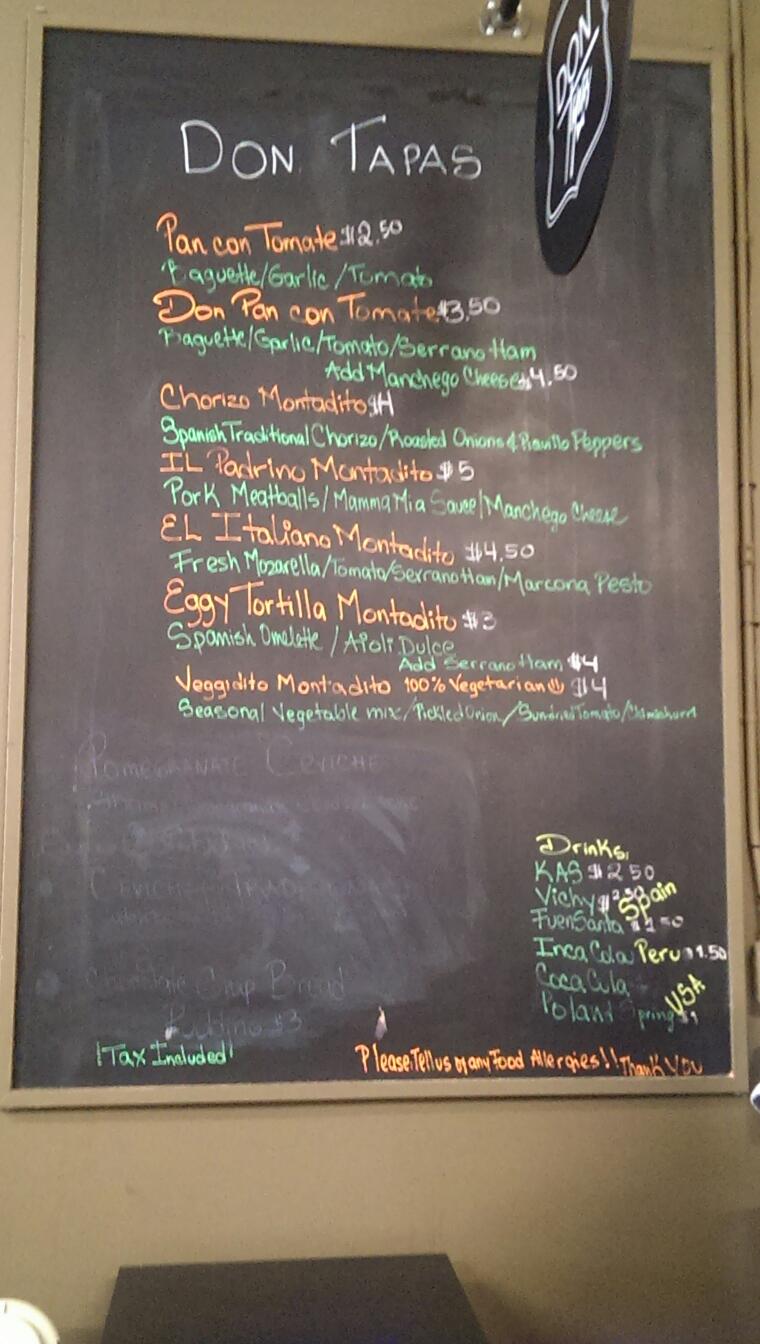 DON
DON TAPAS
Pan con Tomate $2.50
Baguette/Garlic/Tomato
Don Pan con Tomate $3.50
Baguette/Garlic/Tomato/Serrano Ham
Add Manchego Cheese $4.50
Chorizo Montadito $4
Spanish Traditional Chorizo/Roasted Onions & Piquillo Peppers
IL Padrino Montadito $5
Pork Meatballs/Mamma Mia Sauce/Manchego Cheese
EL Italiano Montadito $4.50
Fresh Mozarella/Tomato/Serrano Ham/Marcona Pesto
Eggy Tortilla Montadito $3
Spanish Omelette / Aioli Dulce
Add Serrano Ham $4
Veggidito Montadito 100% Vegetarian $4
Seasonal Vegetable mix/Pickled Onion/Sundried Tomato/Chimichurri
POMEGRANATE CEVICHE
Chocolate Chip Bread
Pudding $3
Drinks:
KAS $2.50
Vichy $2.50 Spain
FuenSanta $1.50
Inca Cola Peru $1.50
Coca Cola
Poland Spring $1 USA
!Tax Included!
Please Tell us of any Food Allergies!! Thank You